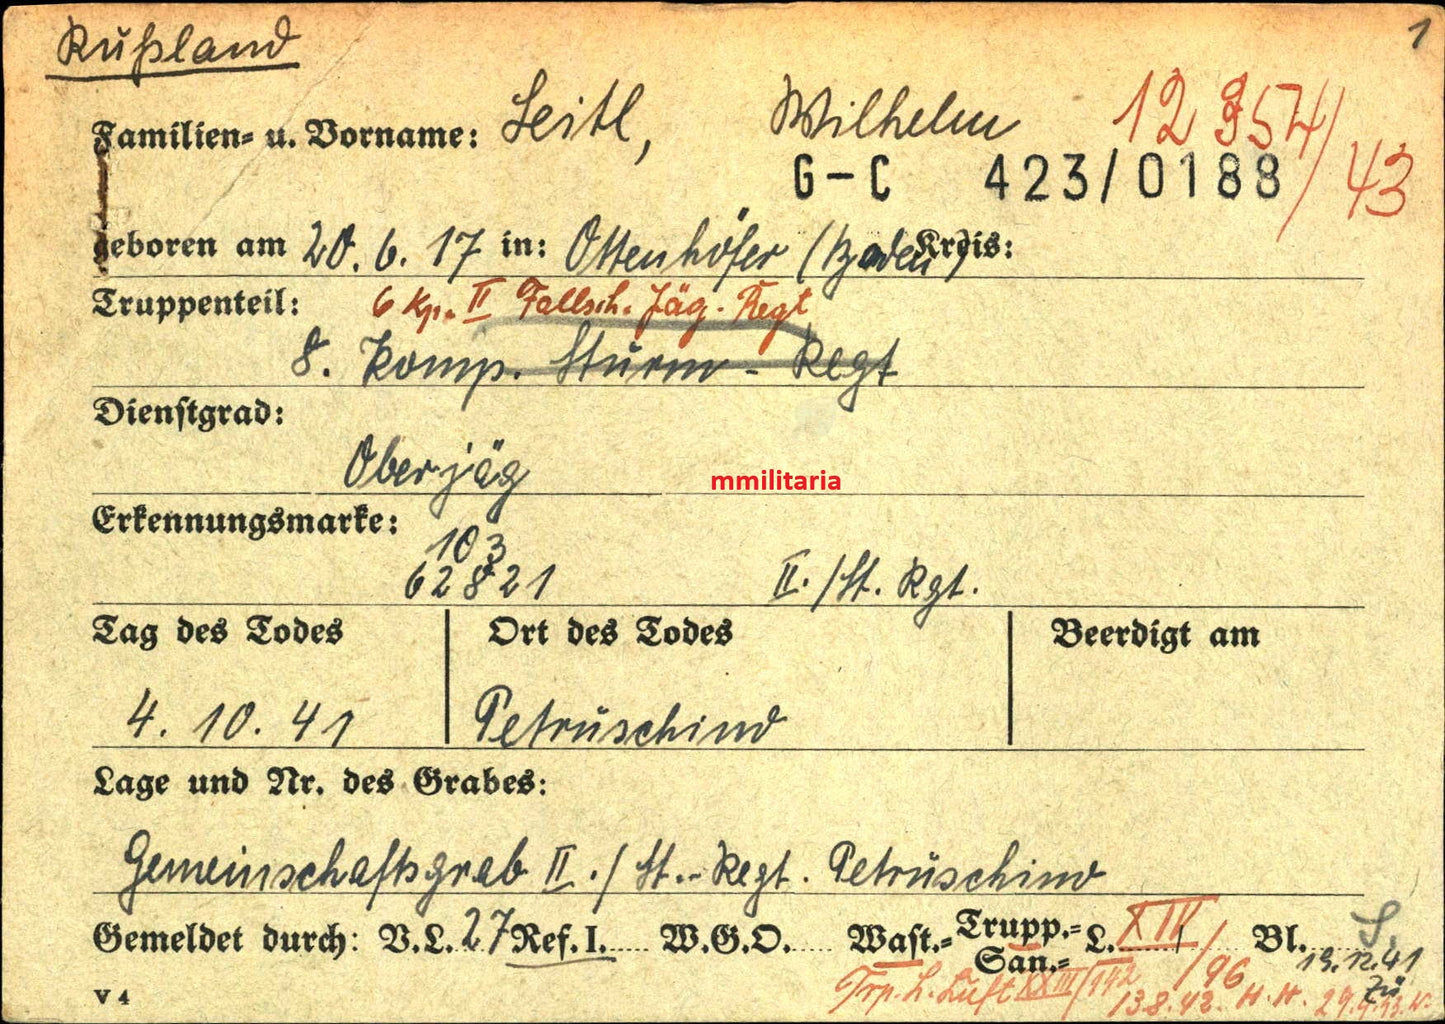 Rußland
1
Familien- u. Vorname: Seitl, Wilhelm 12 354/43
G-C 423/0188
geboren am 20. 6. 17 in: Ottenhöfer (Baden) Kreis:
Truppenteil: 6 Kp. II Fallsch. Jäg. Regt
8. Komp. Sturm-Regt
Dienstgrad:
Oberjäg
mmilitaria
Erkennungsmarke:
103
62821 II./St. Rgt.
Tag des Todes Ort des Todes Beerdigt am
4. 10. 41 Petruschino
Lage und Nr. des Grabes:
Gemeinschaftsgrab II./St.-Regt. Petruschino
Gemeldet durch: V.L. 27 Ref. I. W.G.O. Wast.- Trupp.- San.- L. XIV/96 Bl.
19.12.41
Trp. L. Luft XXIII/142
V 4 13.8.42.